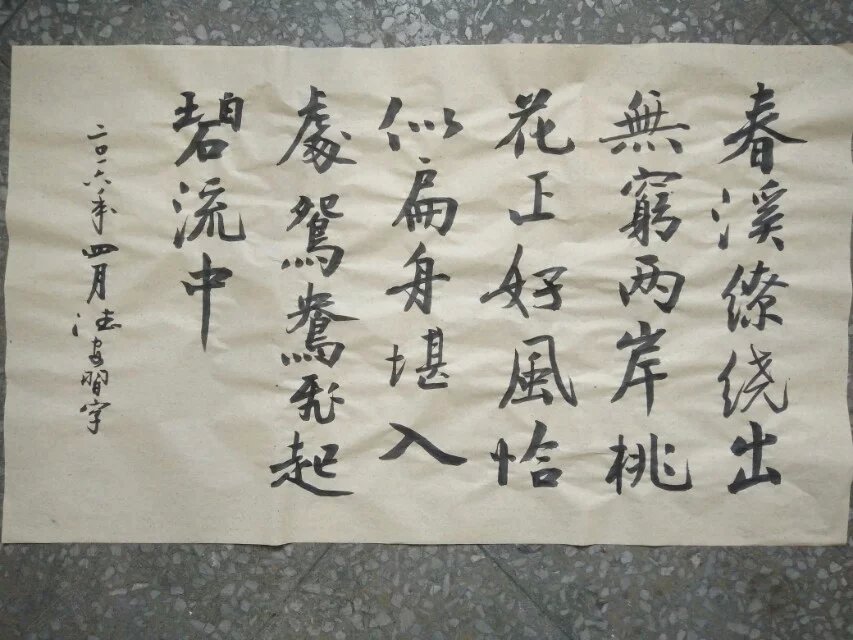 春溪缭绕出
無窮两岸桃
花正好風恰
似扁舟堪入
處鴛鴦飛起
碧流中
二〇一六年四月 习字